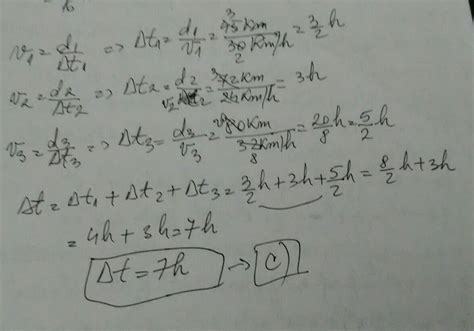 v₁ = d₁/Δt₁ => Δt₁ = d₁/v₁ = 45 Km / 30 Km/h = 3/2 h
v₂ = d₂/Δt₂ => Δt₂ = d₂/v₂ = 72 Km / 24 Km/h = 3h
v₃ = d₃/Δt₃ => Δt₃ = d₃/v₃ = 80 Km / 32 Km/h = 20/8 h = 5/2 h
Δt = Δt₁ + Δt₂ + Δt₃ = 3/2 h + 3h + 5/2 h = 8/2 h + 3h
= 4h + 3h = 7h
Δt = 7h → C)